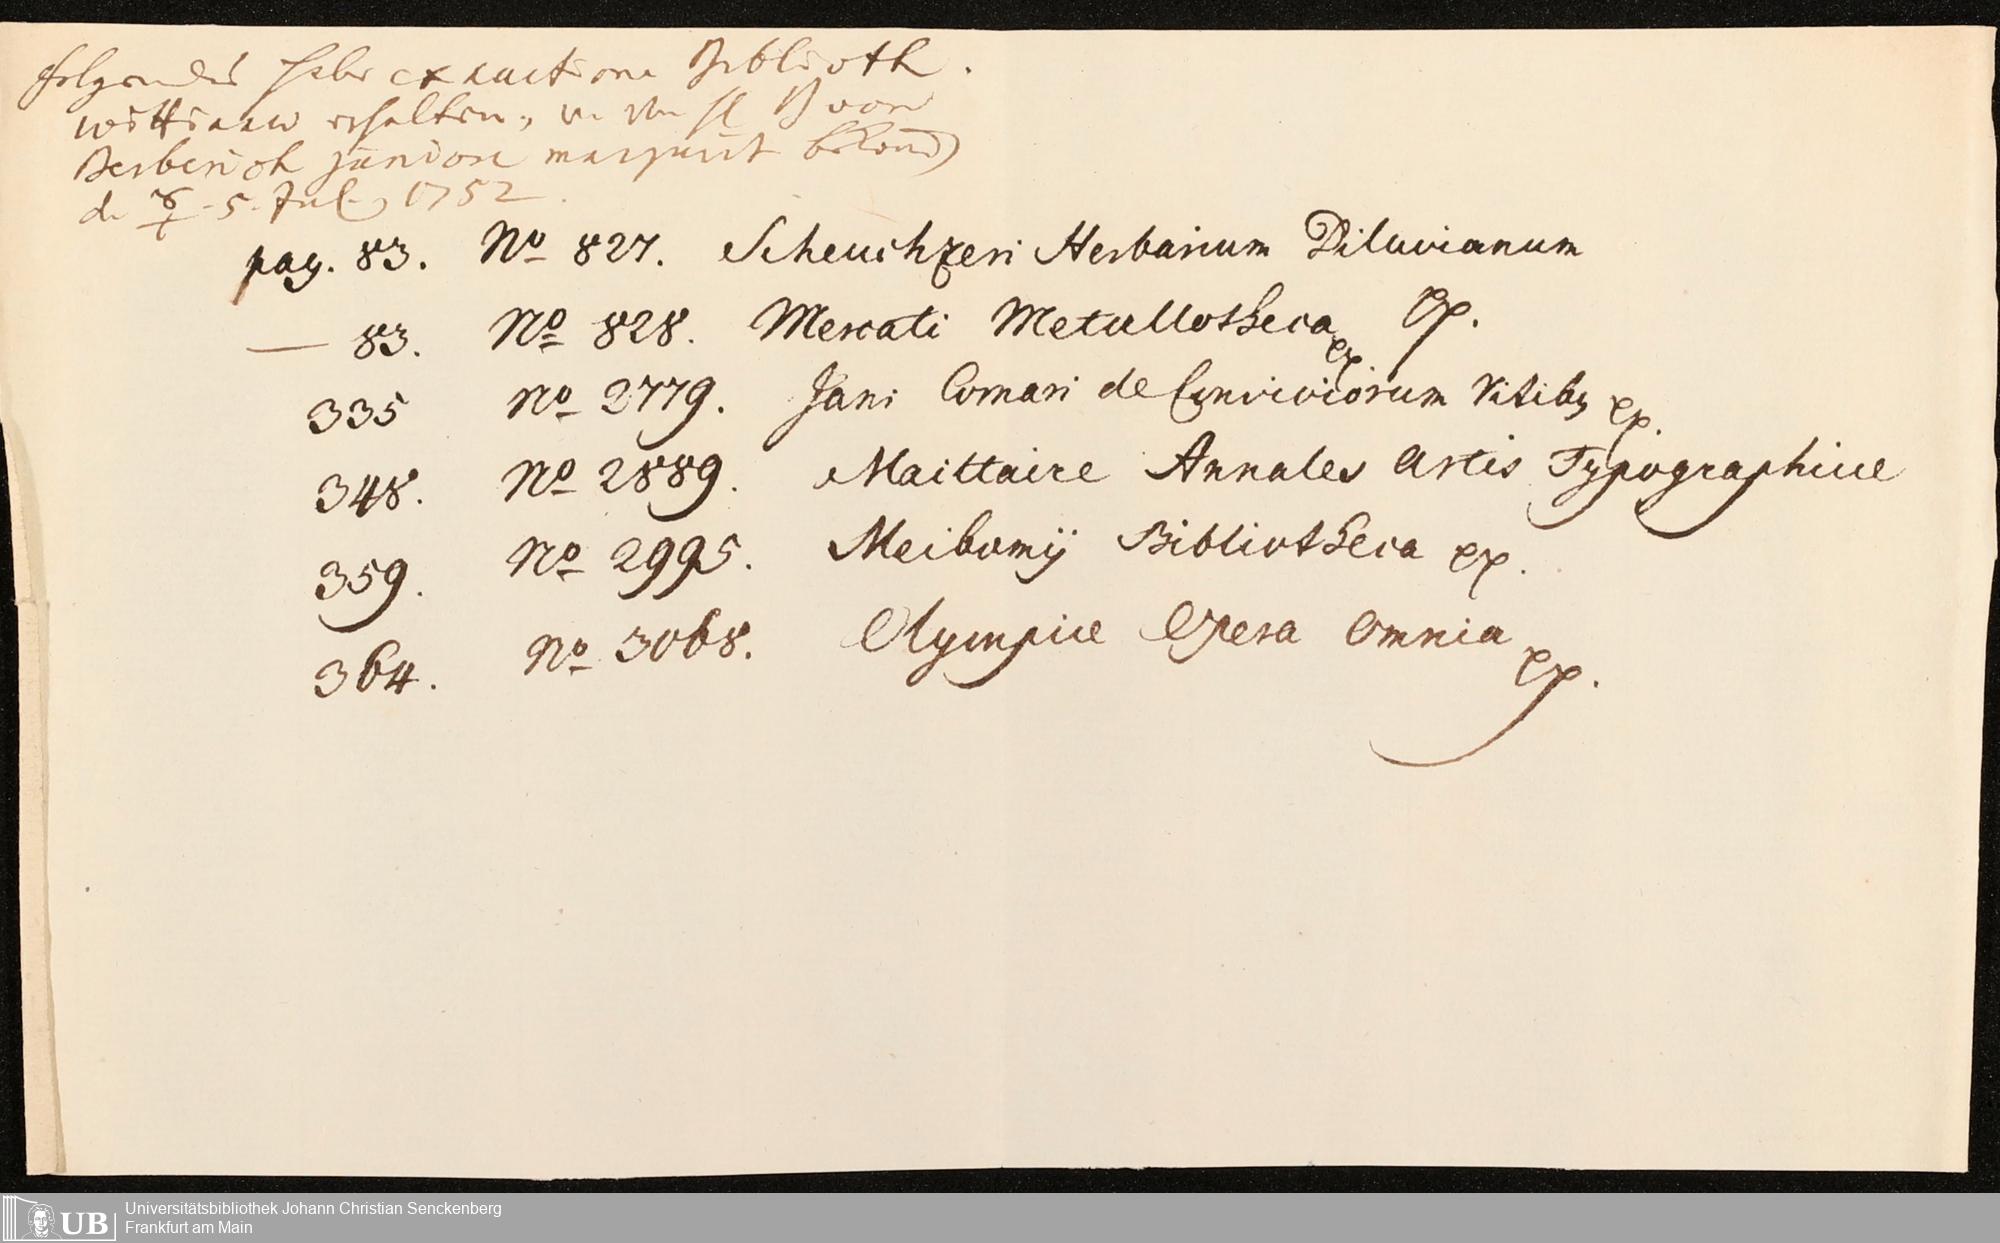 folgendes habe ex auctione Biblioth.
wittianae erhalten,
Berberich juniore
de 5. Jul. 1752.
pag. 83. No 827. Scheuchzeri Herbarium Diluvianum
— 83. No 828. Mercati Metallotheca
335 No 2779. Jani Cornari de Conviviorum Ritibus
348. No 2889. Maittaire Annales Artis Typographicae
359. No 2995. Meibomij Bibliotheca
364. No 3068. Olympiae Opera Omnia
UB
Universitätsbibliothek Johann Christian Senckenberg
Frankfurt am Main